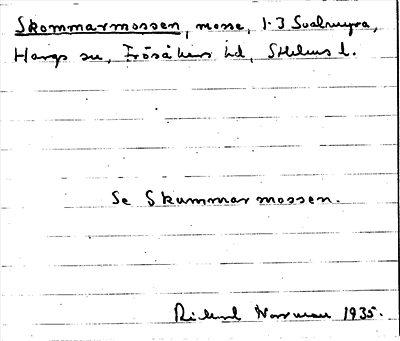 Skommarmossen, mosse, 1-3 Svalmyra,
Hargs sn, Frösåkers hd, Sthlms l.
Se Skummarmossen.
Rickard Norrman 1935.